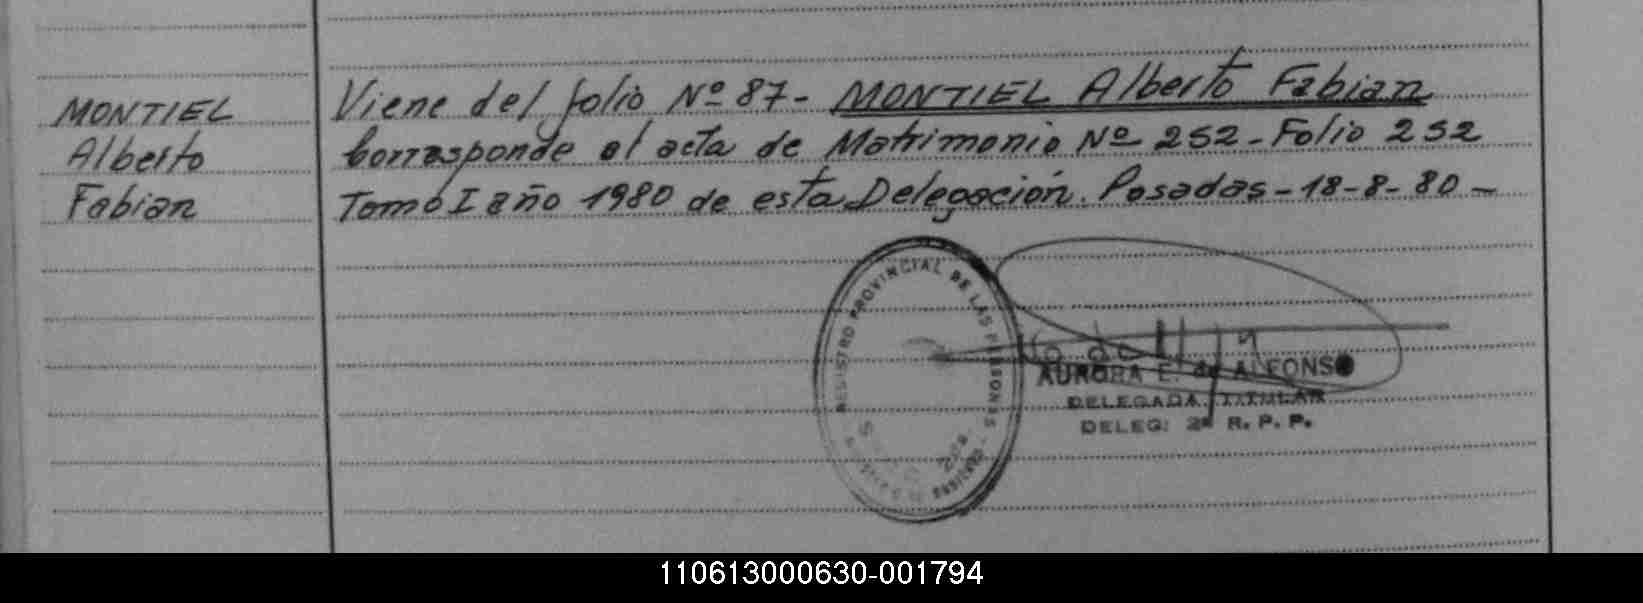 MONTIEL
Alberto
Fabian
Viene del folio Nº 87- MONTIEL Alberto Fabian
Corresponde al acta de Matrimonio Nº 252-Folio 252
Tomo I año 1980 de esta Delegación. Posadas-18-8-80-
REGISTRO PROVINCIAL DE LAS PERSONAS
AURORA E. de ALFONSO
DELEGADA TITULAR
DELEG: 2ª R. P. P.
110613000630-001794